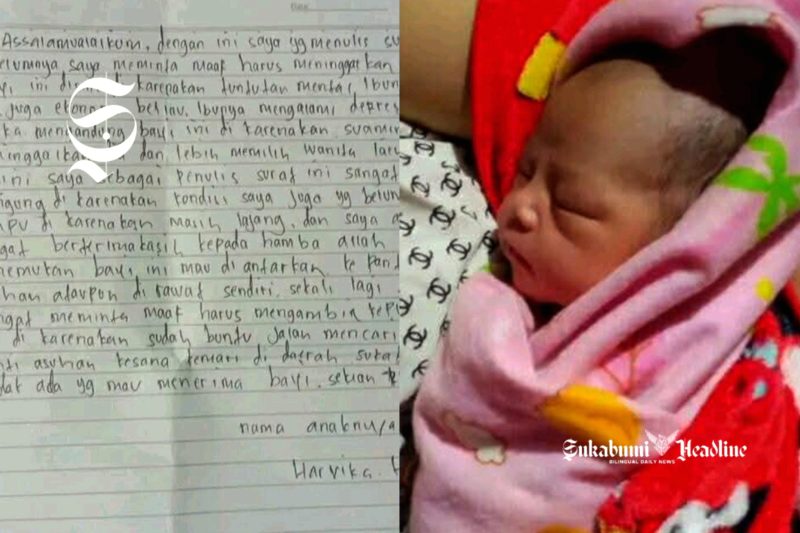 Assalamualaikum, dengan ini saya yg menulis su
saya meminta maaf harus meninggalkan
ini di karenakan tuntutan mental ibun
juga ekonomi beliau. Ibunya mengalami depres
mengandung bayi ini di karenakan suamin
dan lebih memilih wanita lain
ini saya sebagai penulis surat ini sangat
di karenakan kondisi saya juga yg belum
di karenakan masih lajang, dan saya
berterimakasih kepada hamba allah
bayi ini mau di antarkan ke pant
ataupun di rawat sendiri, sekali lagi
meminta maaf harus mengambil kepu
di karenakan sudah buntu jalan mencari
asuhan kesana kemari di daerah suka
ada yg mau menerima bayi. sekian
nama anaknya
Harvika.
S
Sukabumi Headline
BILINGUAL DAILY NEWS